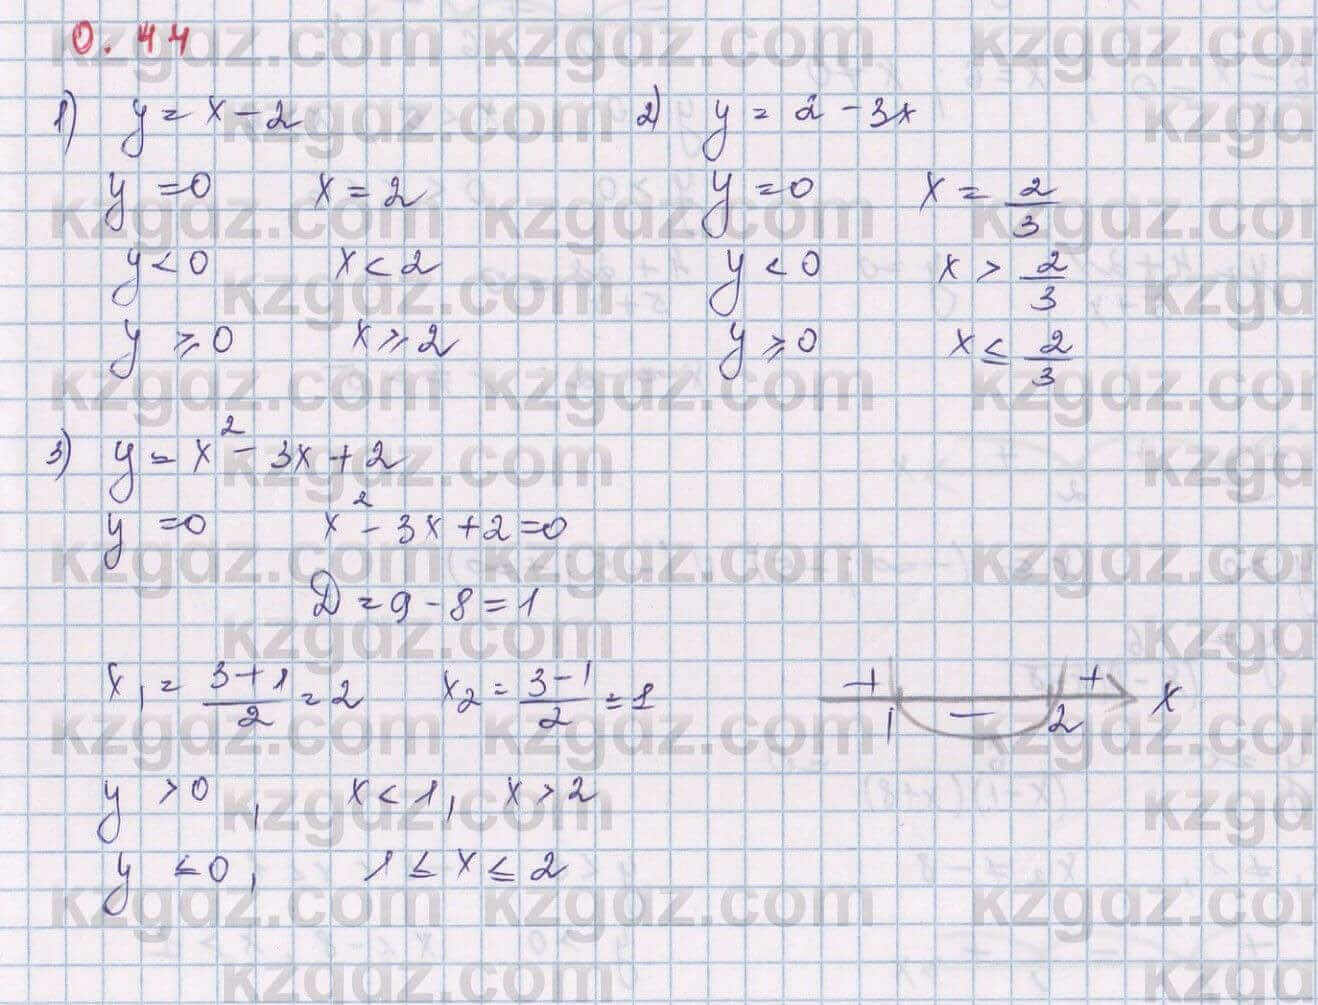 0.44
1) y = x - 2
y = 0 x = 2
y < 0 x < 2
y ⩾ 0 x ⩾ 2
2) y = 2 - 3x
y = 0 x = 2/3
y < 0 x > 2/3
y ⩾ 0 x ≤ 2/3
3) y = x² - 3x + 2
y = 0 x² - 3x + 2 = 0
D = 9 - 8 = 1
x₁ = (3+1)/2 = 2 x₂ = (3-1)/2 = 1
+ - + x
1 2
y > 0, x < 1, x > 2
y ≤ 0, 1 ≤ x ≤ 2
kzgdz.com